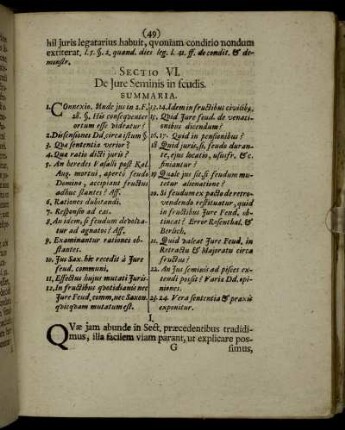 (49)
hil juris legatarius habuit, qvoniam conditio nondum
extiterat. l. 5. §. 2. quand. dies leg. l. 41. ff. de condit. & de-
monstr.
SECTIO VI.
De Jure Seminis in feudis.
SUMMARIA.
1. Connexio. Unde jus in 2. F.
28. §. His consequenter
ortum esse videatur?
2. Dissensiones Dd. circa istum §
3. Qua sententia verior?
4. Qua ratio dicti juris?
5. An heredes Vasalli post Kal.
Aug. mortui, aperti feudi
Domino, accipiant fructus
adhuc stantes? Aff.
6. Rationes dubitandi.
7. Responsio ad eas.
8. An idem, si feudum devolva-
tur ad agnatos? Aff.
9. Examinantur rationes ob-
stantes.
10. Jus Sax. hic recedit à Jure
feud. communi,
11. Effectus hujus mutati Juris
12. In fructibus quotidianis nec
Jure Feud, comm, nec Saxon.
quicquam mutatum est.
13. 14. Idem in fructibus civilibg.
15. Quid Jure feud. de venati-
onibus dicendum?
16. 17. Quid in pensionibus?
18 Quid juris, si, feudo duran-
te, ejus locatio, ususfr. &c.
finiantur?
19 Quale jus sit, si feudum mu-
tetur alienatione?
20. Si feudum ex pacto de retro-
vendendo restituatur, quid
in fructibus Jure Feud. ob-
tineat? Error Rosenthal. &
Berlich.
21. Quid valeat Jure Feud. in
Retractu & Majoratu circa
fructus?
22. An Jus seminis ad pisces ex-
tendi possit? Varia Dd. opi-
niones.
23. 24. Vera sententia & praxis
exponitur.
I.
QVæ jam abunde in Sect. præcedentibus tradidi-
mus, illa facilem viam parant, ut explicare pos-
G simus,